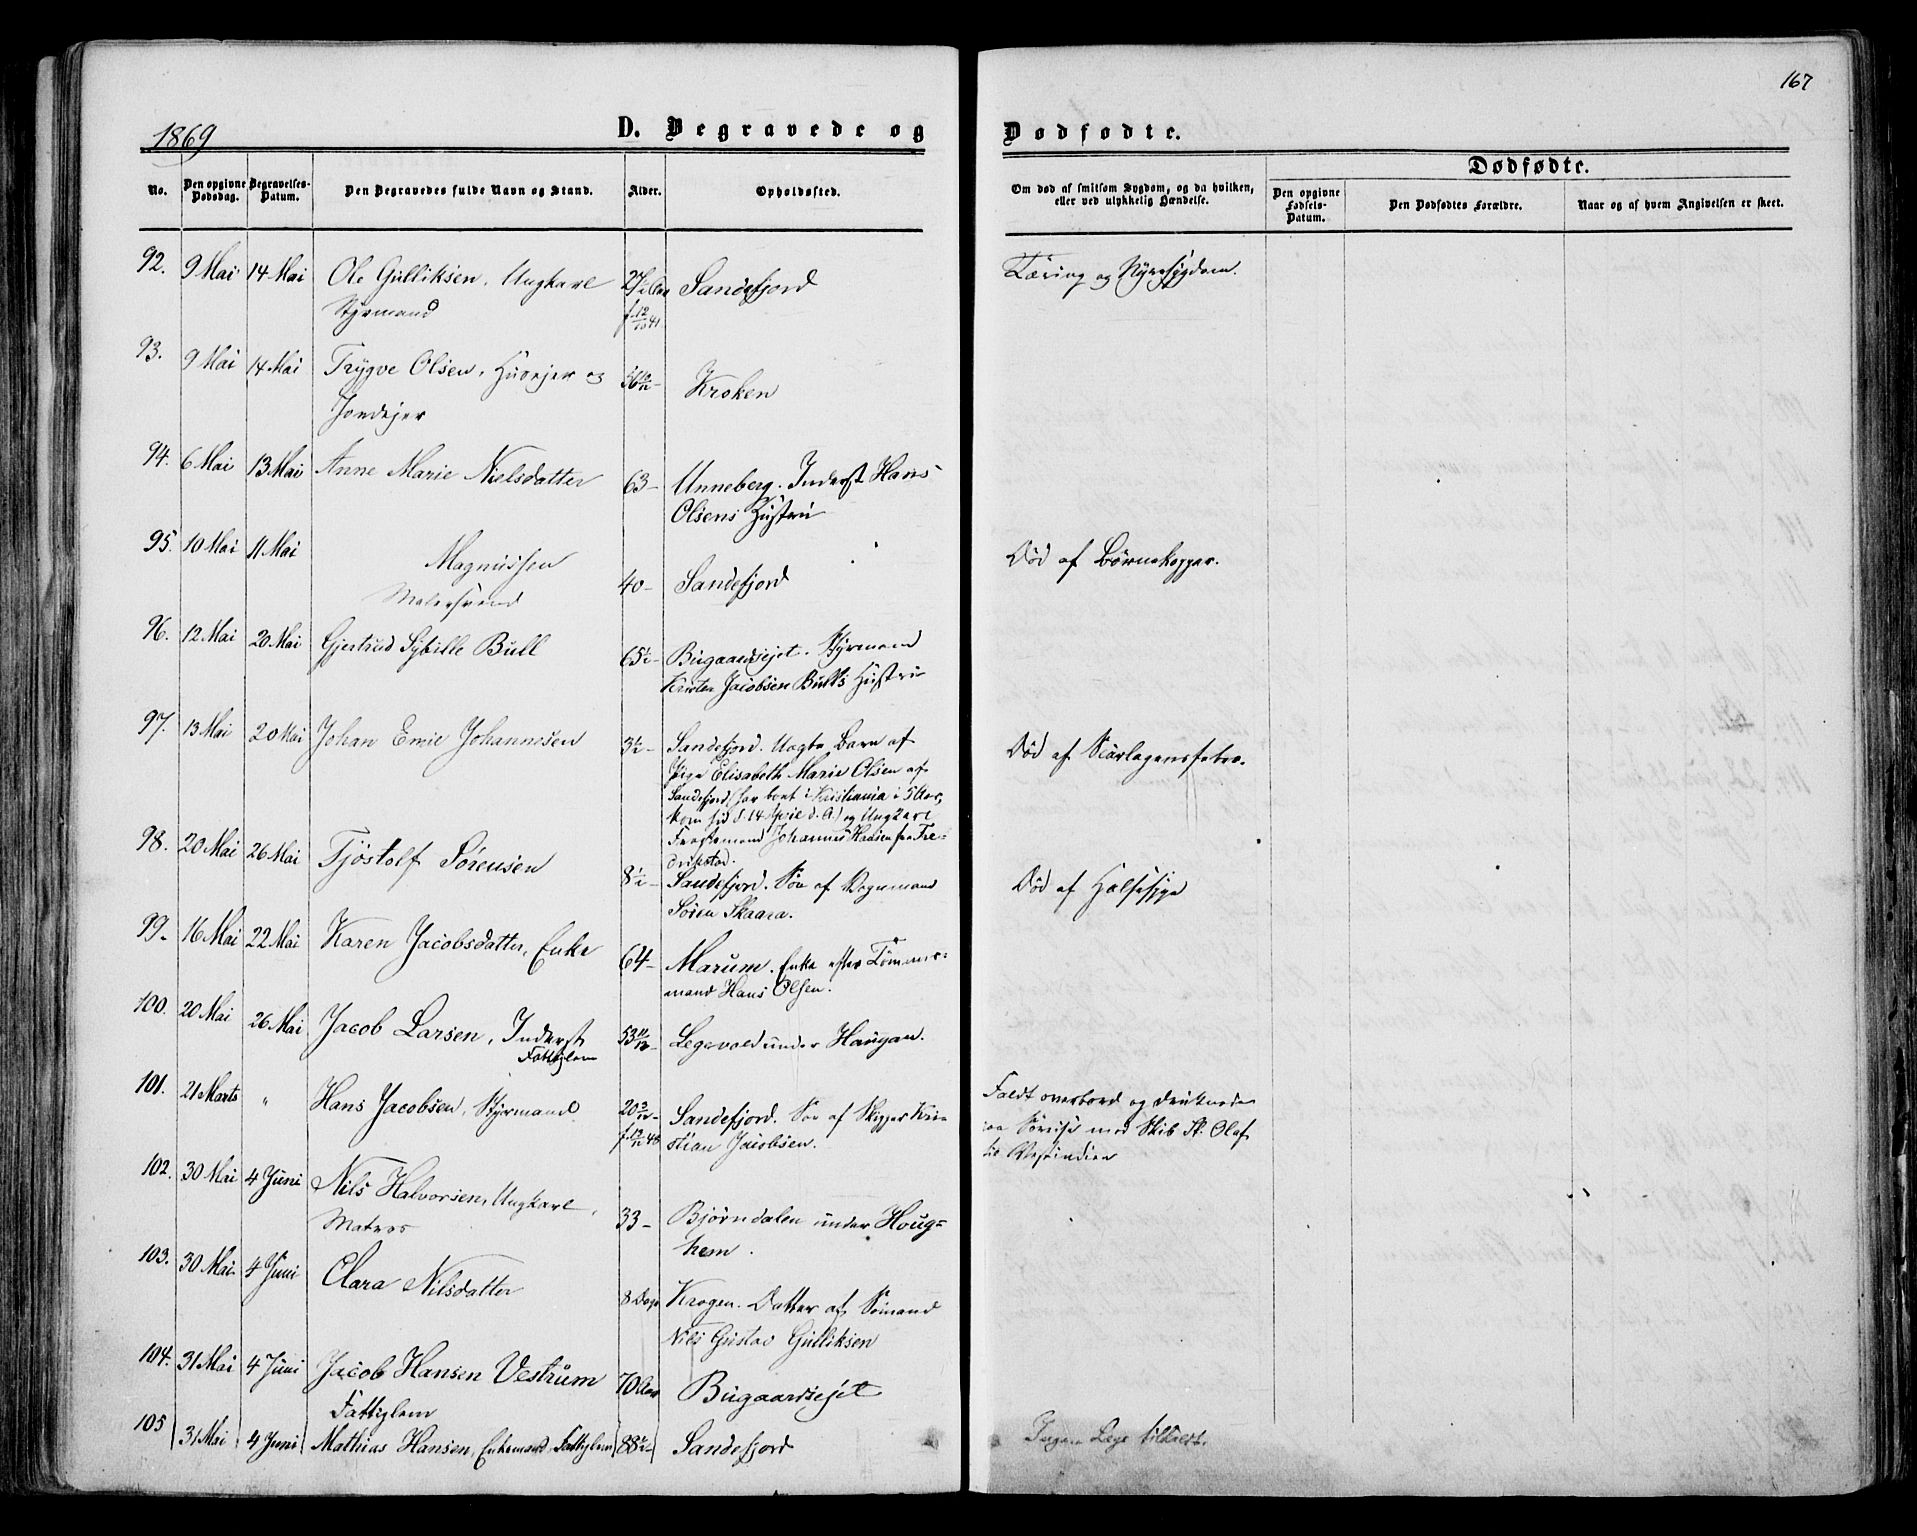 167
1869
D. Begravede og
Dødfødte.
Dødfødte.
No.
Den opgivne Dødsdag.
Begravelses-Datum.
Den Begravedes fulde Navn og Stand.
Alder.
Opholdssted.
Om død af smitsom Sygdom, og da hvilken,
eller ved ulykkelig Hændelse.
Den opgivne Fødsels-Datum.
Den Dødfødtes Forældre.
Naar og af hvem Angivelsen er skeet.
92. 9 Mai 14 Mai Ole Gulliksen, Ungkarl Sandefjord Tæring og Nyresygdom.
Styrmand
93. 9 Mai 14 Mai Trygve Olsen, Huusejer og 56 10/12 Kroken
Jordejer
94. 6 Mai 13 Mai Anne Marie Nielsdatter 63 Unneberg. Inderst Hans
Olsens Hustru
95. 10 Mai 11 Mai Magnussen 40 Sandefjord Død af Børnekopper.
Malersvend
96. 12 Mai 20 Mai Gjertrud Sybille Bull 65 1/2 Bugaardsejet. Styrmand
Jacobsen Bulls Hustru
97. 13 Mai 20 Mai Johan Emil Johannesen 3 1/2 Sandefjord. Uægte Barn af Død af Skarlagensfeber.
Pige Elisabeth Marie Olsen af
Sandefjord (har boet i Kristiania i 5 Aar,
kom hid d. 14 April d. A.) og Ungkarl
Johannes Hansen fra Fre-
drikstad.
98. 20 Mai 26 Mai Tjöstolf Sörensen 8 1/2 Sandefjord. Søn af Vognmand Død af Halssyge
Sören Skaara.
99. 16 Mai 22 Mai Karen Jacobsdatter, Enke 64 Marum. Enke efter Tømmer-
mand Hans Olsen.
100. 20 Mai 26 Mai Jacob Larsen, Inderst 53 11/12 Legevold under Haugan.
Fattiglem
101. 21 Marts " Hans Jacobsen, Styrmand 20 Sandefjord. Søn af Skipper Kri-
stian Jacobsen.
Faldt overbord og druknede
paa med Skib St. Olaf
til Vestindien
102. 30 Mai 4 Juni Nils Halvorsen, Ungkarl, 33 Bjørndalen under Houg-
Matros hem.
103. 30 Mai 4 Juni Clara Nilsdatter 8 Dage Krogen. Datter af Sømand
Nils Gustav Gulliksen
104. 31 Mai 4 Juni Jacob Hansen Vestrum 70 Aar Bugaardsejet
Fattiglem
105 31 Mai 4 Juni Mathias Hansen, Enkemand, Fattiglem 88 1/2 Sandefjord Ingen Læge tilkaldt.